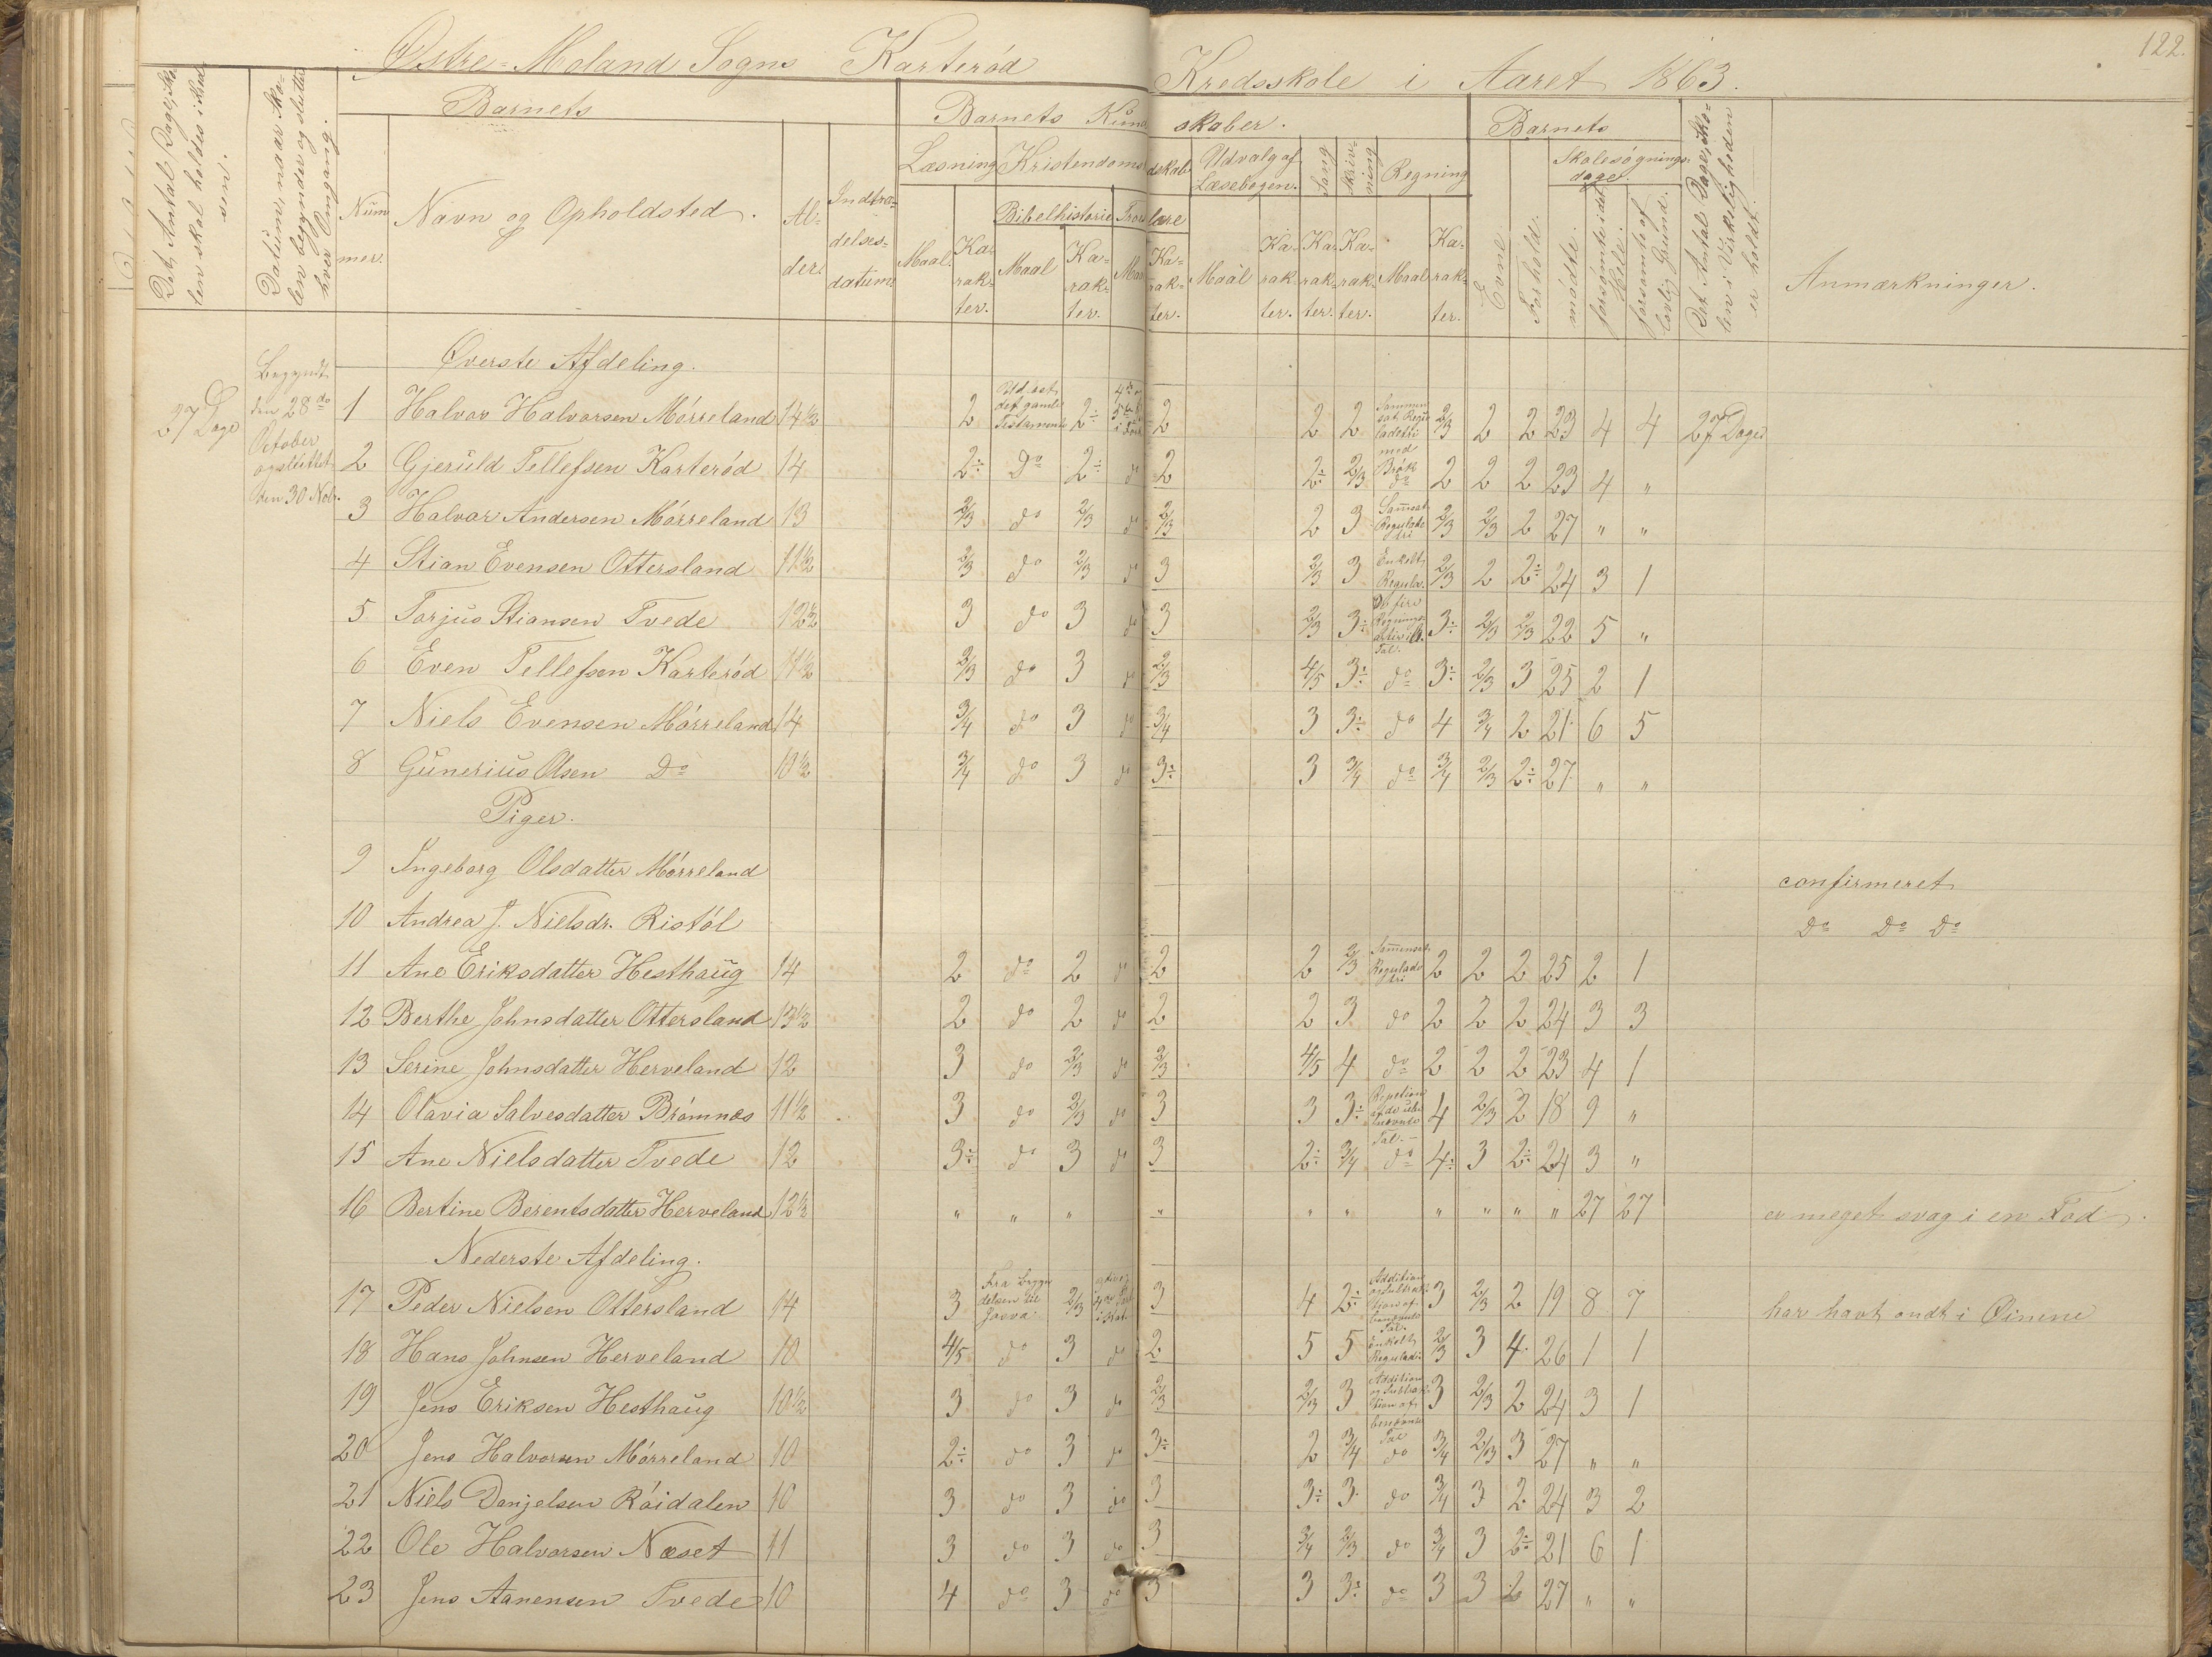 122.
Østre-Moland Sogns Karterød Kredsskole i Aaret 1863.
Det Antal Dage, Skolen skal holdes i Kredsen.
Datum, naar Skolen begynder og slutter hver Omgang.
Barnets
Barnets Kundskaber.
Barnets
Det Antal Dage, Skolen i Virkeligheden er holdt.
Anmærkninger.
Nummer.
Navn og Opholdsted.
Alder.
Indtrædelsesdatum
Læsning
Kristendomsdskab
Udvalg af Læsebogen.
Sang
Skrivning
Regning
Evne
Forhold.
Skolesøgningsdage.
Bibelhistorie
Troeslære
Maal. Karakter. Maal Karakter. Maal Karakter. Maal Karakter. Karakter. Karakter. Maal Karakter.
mødte.
forsømte i det Hele.
forsømte af lovlig Grund.
Øverste Afdeling.
27 Dage
Begyndt den 28de October og sluttet den 30 Nobr.
1 Halvor Halvorsen Mørreland 14½ 2 Ud det gamle Testamente 2÷ 2 2 2 Sammensat Reguladetri med Brøk 2/3 2 2 23 4 4 27 Dage
2 Gjeruld Tellefsen Karterød 14 2÷ Do 2÷ do 2 2÷ 2/3 do 2 2 2 23 4 "
3 Halvor Andersen Mørreland 13 2/3 do 2/3 do 2/3 2 3 Samensat Reguladetri 2/3 2/3 2 27 " "
4 Stian Evensen Ottersland 11½ 2/3 do 2/3 do 3 2/3 3 EnkeltRegula. 2/3 2 2÷ 24 3 1
5 Torjus Stiansen Tvede 12½ 3 do 3 do 3 2/3 3÷ De fire Regningsarter i Tal. 3÷ 2/3 2/3 22 5 "
6 Even Tellefsen Karterød 11½ 2/3 do 3 do 2/3 4/5 3÷ do 3÷ 2/3 3 25 2 1
7 Niels Evensen Mørreland 14 3/4 do 3 do 3/4 3 3÷ do 4 3/4 2 21 6 5
8 Gunerius Olsen Do 13½ 3/4 do 3 do 3÷ 3 3/4 do 3/4 2/3 2÷ 27 " "
Piger.
9 Ingeborg Olsdatter Mørreland confirmeret
10 Andrea J. Nielsdr. Ristøl Do Do Do
11 Ane Eriksdatter Hesthaug 14 2 do 2 do 2 2 2/3 Samensat Reguladetri 2 2 2 25 2 1
12 Berthe Johnsdatter Ottersland 13½ 2 do 2 do 2 2 3 do 2 2 2 24 3 3
13 Serine Johnsdatter Herveland 12 3 do 2/3 do 2/3 4/5 4 do 2 2 2 23 4 1
14 Olavia Salvesdatter Brømnes 11½ 3 do 2/3 do 3 3 3÷ Repetion af de ubenævnte Tal. 4 2/3 2 18 9 "
15 Ane Nielsdatter Tvede 12 3÷ do 3 do 3 2÷ 3/4 do 4÷ 3 2÷ 24 3 "
16 Bertine Berentsdatter Herveland 12½ " " " " " " " " " " 27 27 er meget svag i en Fod.
Nederste Afdeling.
17 Peder Nielsen Ottersland 14 3 Fra Begyndelsen til Josva 2/3 3 4 2÷ Addition og Subtraktion af benævnte Tal. 3 2/3 2 19 8 7 har havt ondt i Øinene
18 Hans Johnsen Herveland 10 4/5 do 3 do 2 5 5 Enkelt Regulad. 2/3 3 4 26 1 1
19 Jens Eriksen Hesthaug 10½ 3 do 3 do 2/3 2/3 3 Addition og Subtraktion af benævnte Tal 3 2/3 2 24 3 1
20 Jens Halvorsen Mørreland 10 2÷ do 3 do 3÷ 2 3/4 do 3/4 2/3 3 27 " "
21 Niels Danjelsen Røidalen 10 3 do 3 do 3 3÷ 3 do 3/4 3 2 24 3 2
22 Ole Halvorsen Næset 11 3 do 3 do 3 3/4 2/3 do 3/4 3 2÷ 21 6 1
23 Jens Aanensen Tvede 10 4 do 3 do 3 3 3÷ do 3 3 2 27 " "